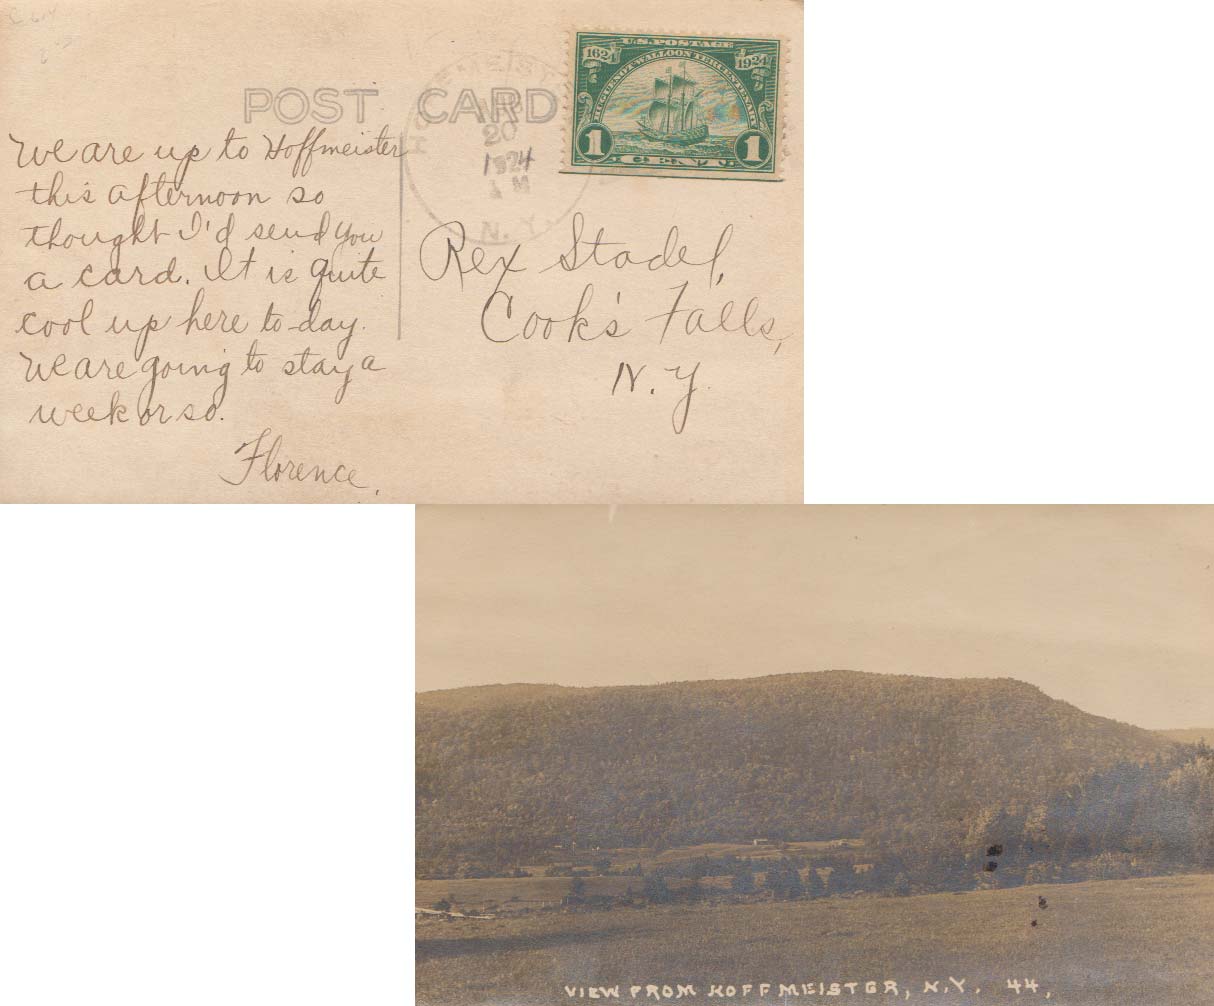 POST CARD
HOFFMEISTER
20
1924
M
N.Y.
U.S. POSTAGE
1624 1924
HUGUENOT-WALLOON TERCENTENARY
1 1
We are up to Hoffmeister
this afternoon so
thought I'd send you
a card. It is quite
cool up here to-day.
We are going to stay a
week or so.
Florence.
Rex Stadel,
Cook's Falls,
N. Y.
VIEW FROM HOFFMEISTER, N.Y. 44.